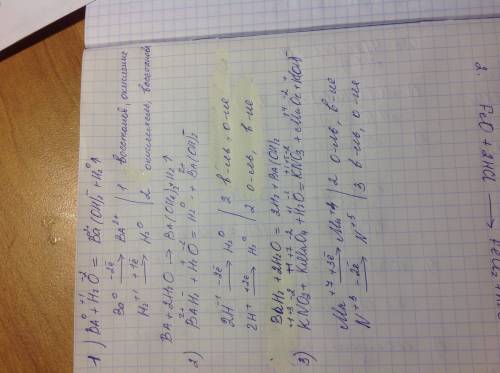 1) Ba⁰ + H₂⁺¹O⁻² = Ba²⁺(OH)₂⁻ + H₂⁰↑
Ba⁰ -2ē → Ba²⁺ | 1 восстановл, окисление
H₂⁺¹ +1ē → H₂⁰ | 2 окислитель, восстановл
Ba + 2H₂O → Ba(OH)₂ + H₂↑
2) BaH₂ + H₂O = H₂⁰ + Ba(OH)₂
2H⁻¹ -2ē → H₂⁰ | 2 в-ль, о-ие
2H⁺ +2ē → H₂⁰ | 2 о-ль, в-ие
BaH₂ + 2H₂O = 2H₂ + Ba(OH)₂
3) KNO₂ + KMnO₄ + H₂O = KNO₃ + MnO₂ + KOH
Mn⁺⁷ +3ē → Mn⁺⁴ | 2 о-ль, в-ие
N⁺³ -2ē → N⁺⁵ | 3 в-ль, о-ие